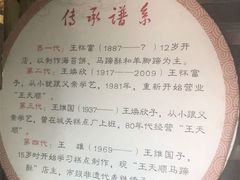 传承谱系
第一代，王怀富（1887——?）12岁开
店，以制作海音饼、马蹄酥和羊脚蹄为主。
第二代，王焕欣（1917——2009）王怀富
子，从小就跟父亲学艺，1981年，重新开始营业
《王天顺》。
第三代，王维国（1937——）王焕欣子，从小跟父
亲学艺，曾在城关糕点厂上班，80年代经营"王天
顺"。
第四代：王雄（1969——）王维国子，
15岁时开始学习糕点制作，现《王天顺马蹄
酥》店主，市级非遗代表性